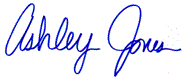 Ashley Jones